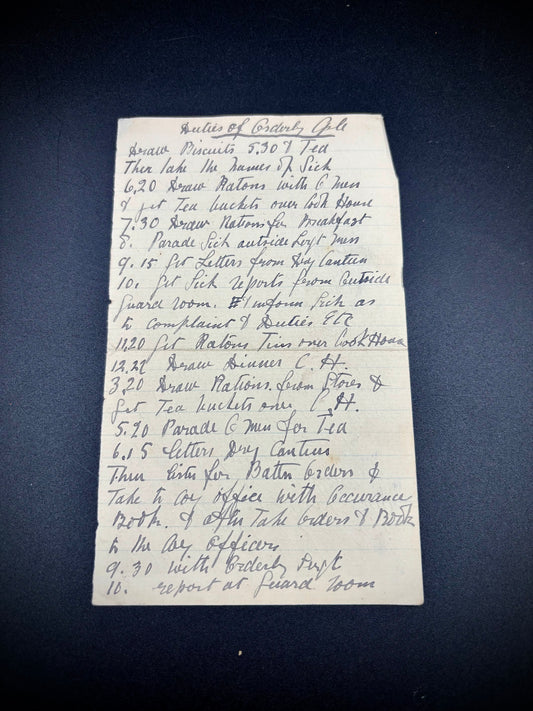 Duties of Orderly Cple
Draw Biscuits 5.30 & Tea
Then take the names of Sick
6.20 Draw Rations with 6 men
& get Tea buckets over Cook House
7.30 Draw Rations for Breakfast
8. Parade Sick outside Sergt men
9.15 Get Letters from Dry Canteen
10. Get Sick reports from Outside
Guard room. & Inform Sick as
to complaint & Duties Etc
11.20 Get Rations Tins over Cook House
12.27 Draw Dinner C. H.
3.20 Draw Rations from Stores &
Get Tea buckets over C. H.
5.20 Parade 6 men for Tea
6.15 Letters Dry Canteen
Then for Battn Orders &
Take to Coy Office with Occurance
Book. & after Take Orders & Book
to the Coy Officers
9.30 with Orderly Sergt
10. report at Guard room